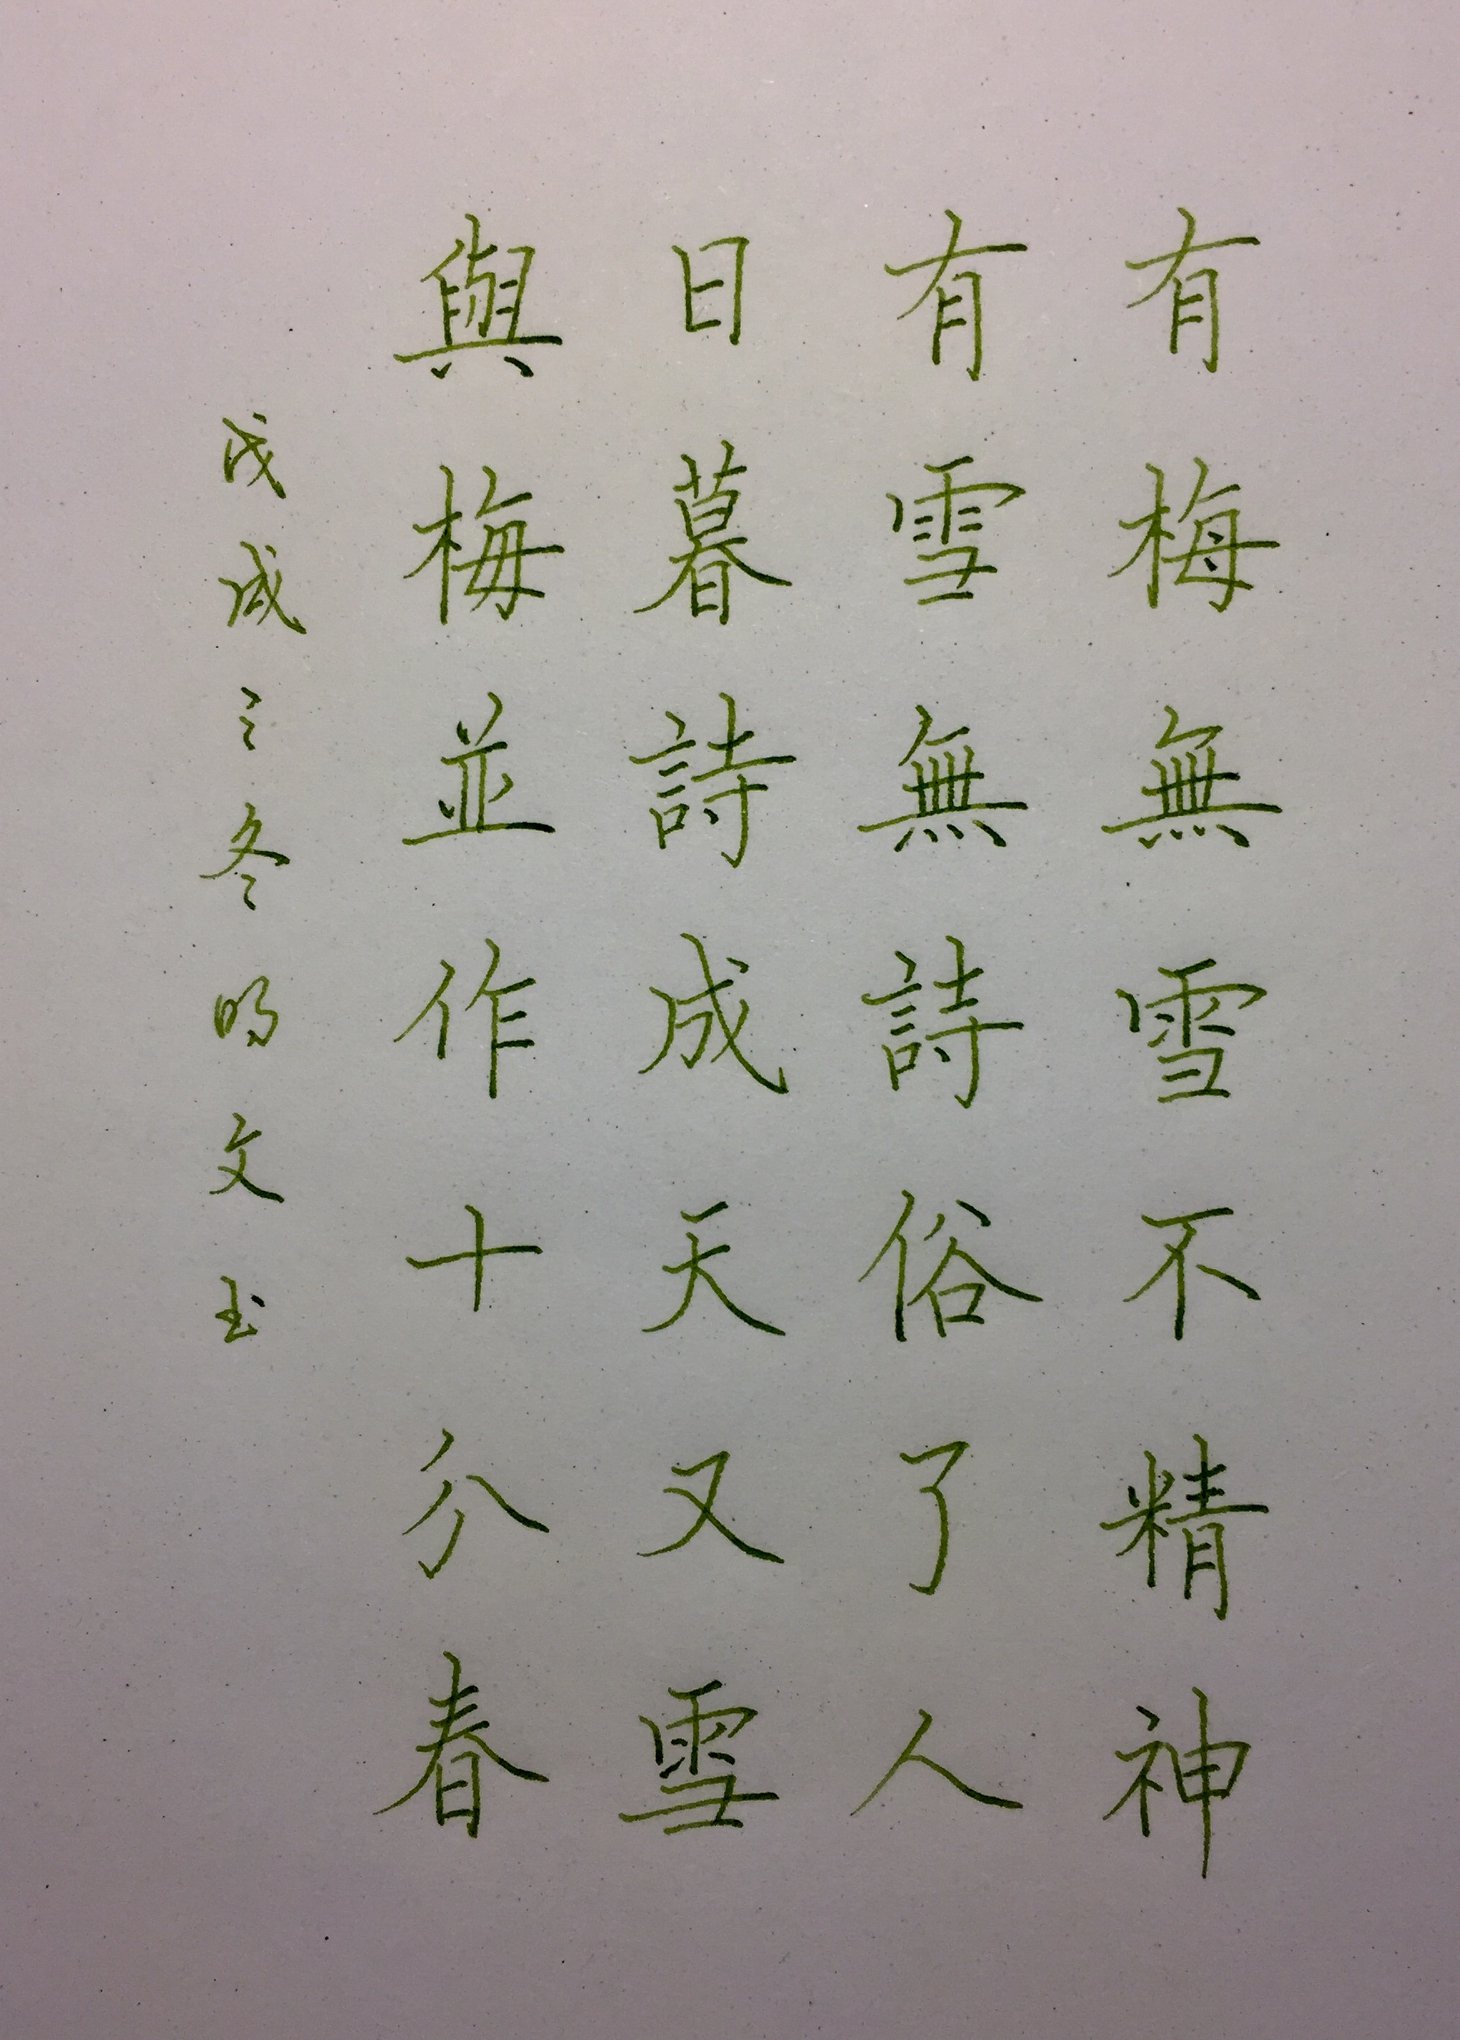 有梅無雪不精神
有雪無詩俗了人
日暮詩成天又雪
與梅並作十分春
戊戌之冬明文书